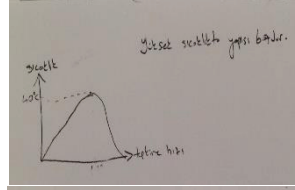 Yüksek sıcaklıkta yapısı bozulur.
sıcaklık
40°C
tepkime hızı